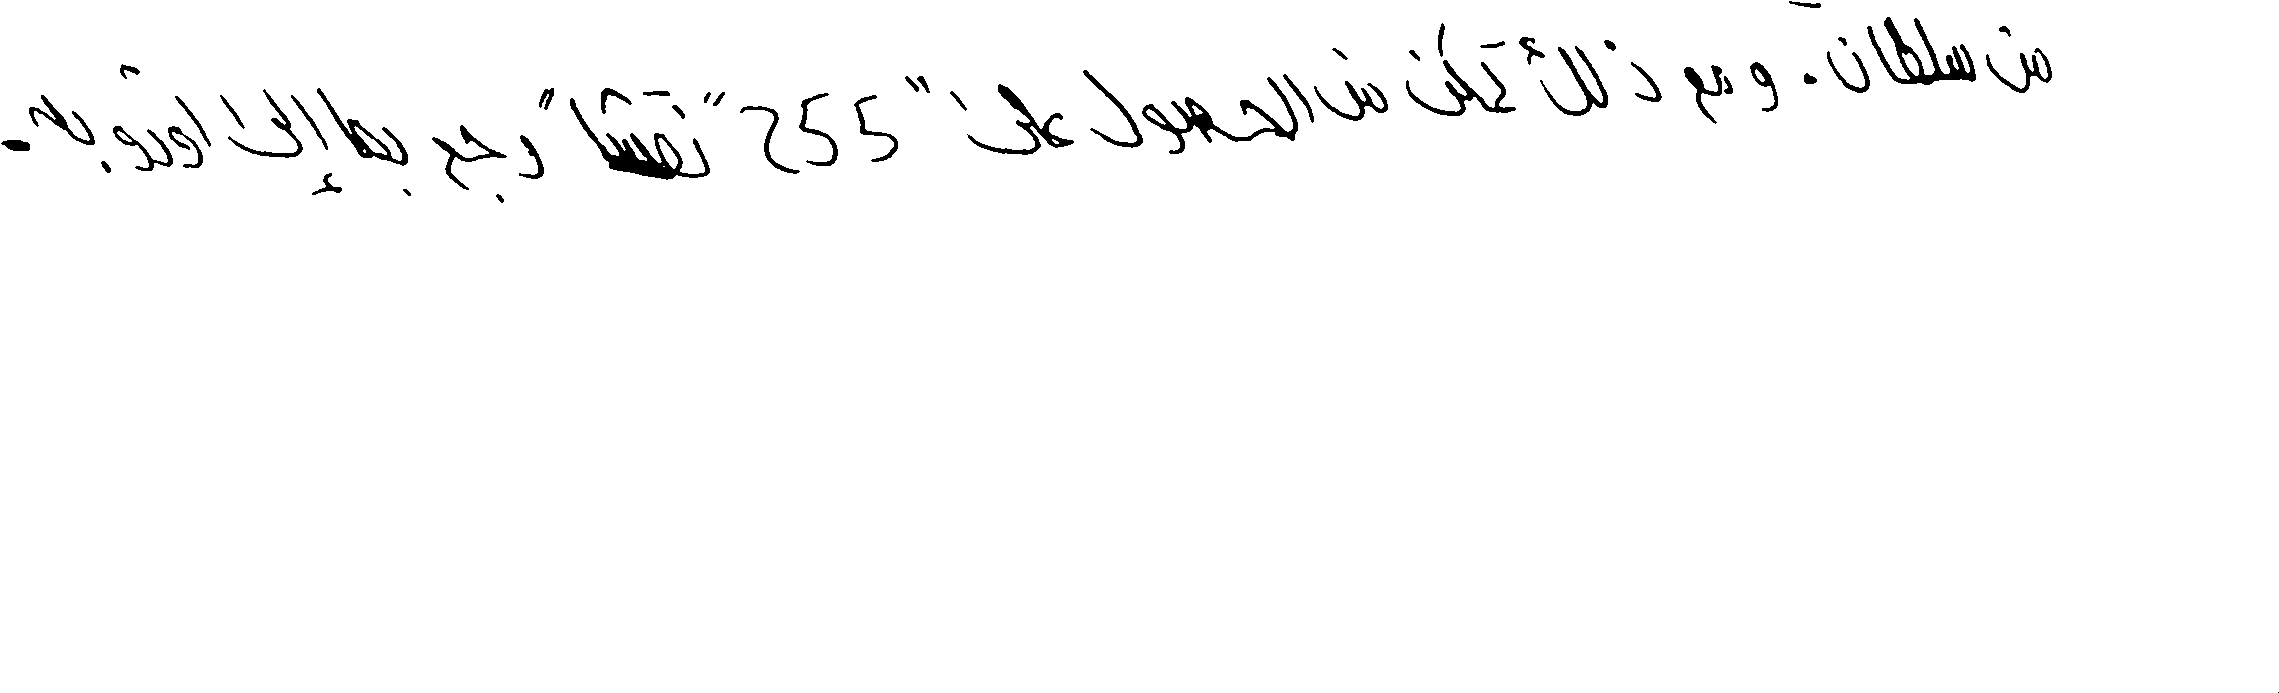 من سلطان. ومع ذلك تمكن من الحصول على "255" نقشا" رجع بها إلى اوروبة.